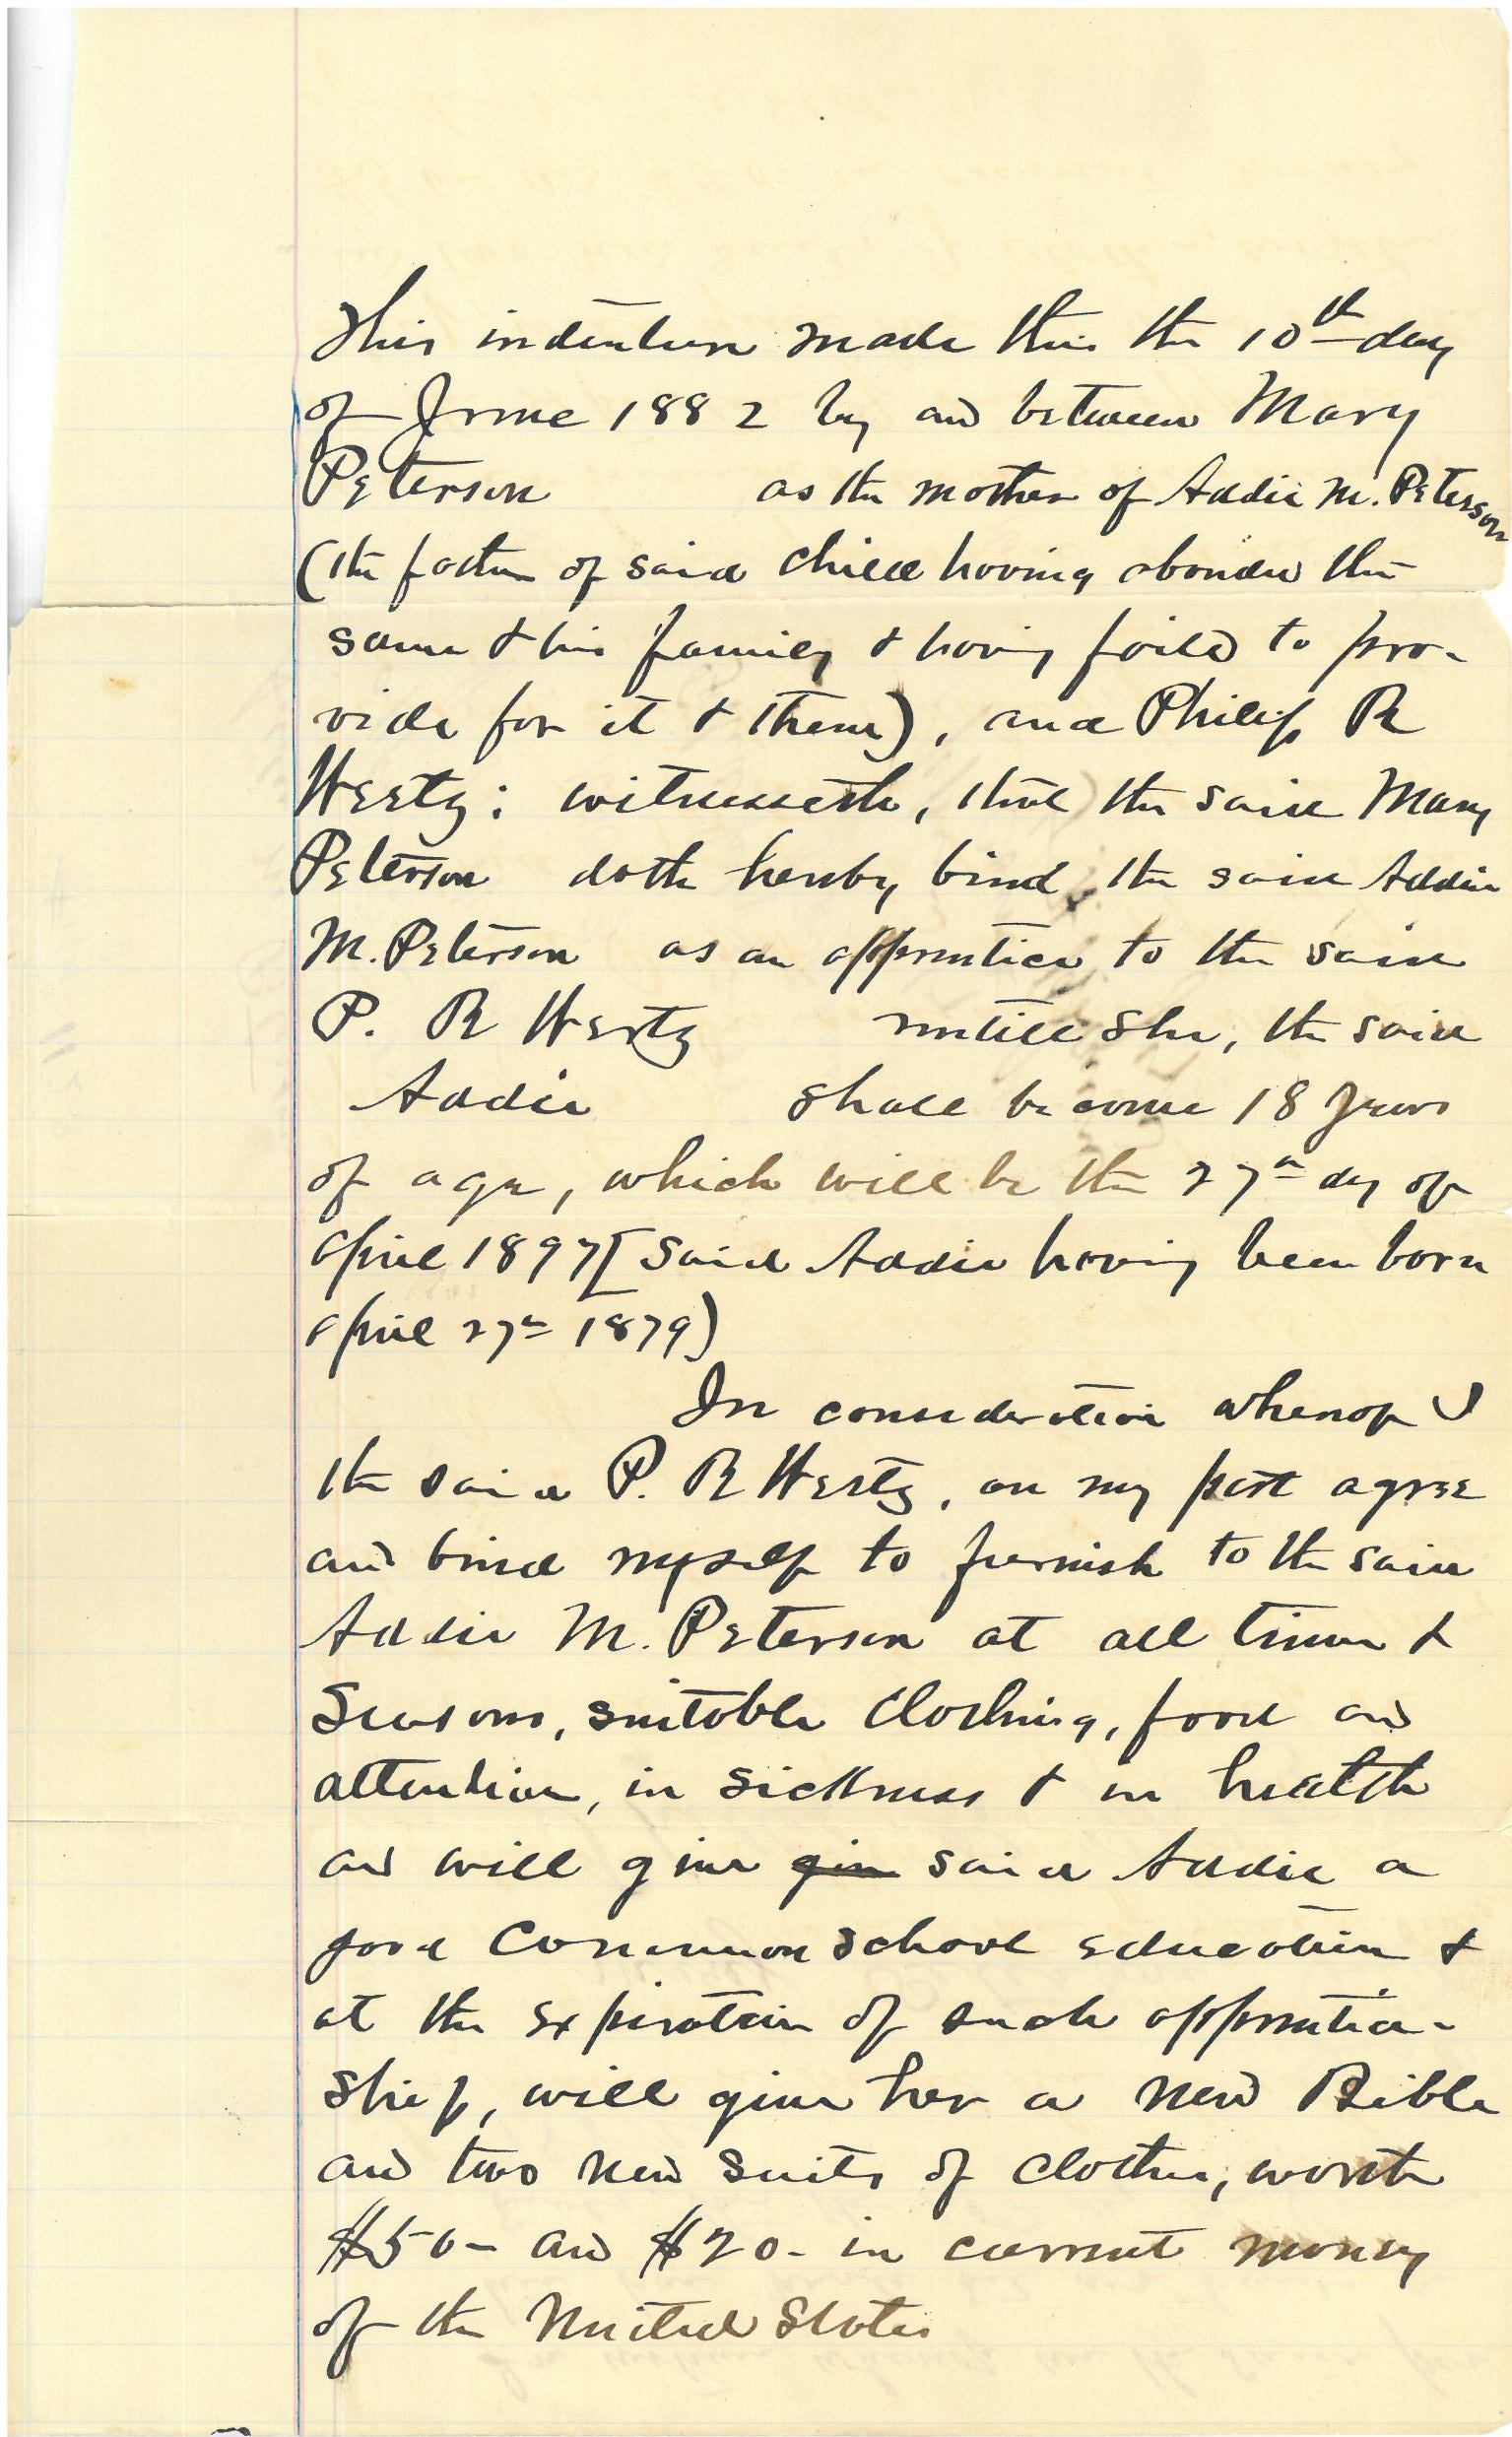 This indenture made this the 10th day
of June 1882 by and between Mary
Peterson as the mother of Addie M. Peterson
(the father of said child having abondnd the
same & his family & having failed to pro-
vide for it & them), and Philip R
Wertz: witnesseth, that the said Mary
Peterson doth hereby bind the said Addie
M. Peterson as an apprentice to the said
P. R Wertz untill she, the said
Addie shall become 18 years
of age, which will be the 27th day of
April 1897 [said Addie having been born
April 27th 1879)
In consideration whereof I
the said P. R Wertz, on my part agree
and bind myself to furnish to the said
Addie M. Peterson at all times &
Seasons, suitable Clothing, food and
attention, in sickness & in health
and will give said Addie a
good Common School education &
at the expiration of such apprentice-
ship, will give her a new Bible
and two new suits of clothes, worth
$50- and $20- in current money
of the United States